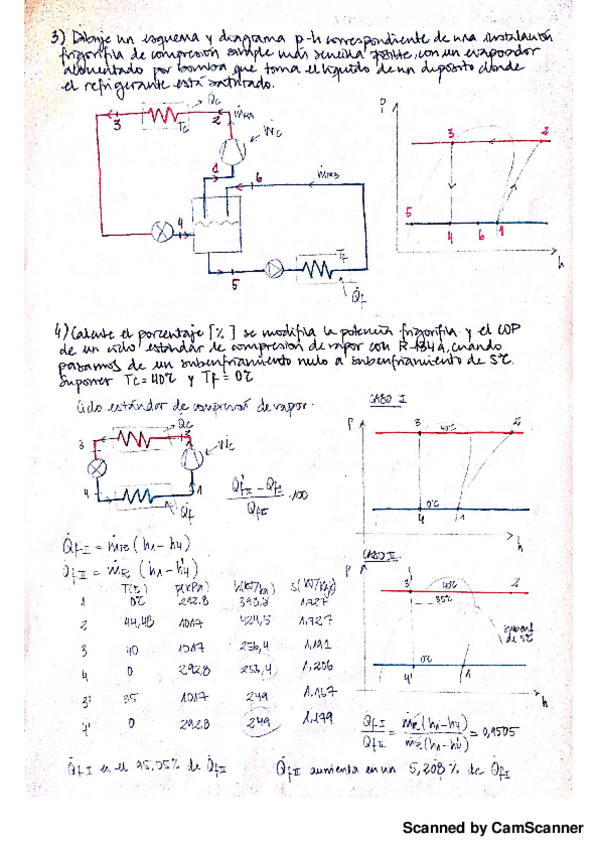 3) Dibuje un esquema y diagrama p-h correspondiente de una instalación
frigorífica de compresión simple más sencilla posible, con un evaporador
alimentado por bomba que toma el líquido de un depósito donde
el refrigerante está saturado.
Qc
3
Tc
2
Wc
1
6
4
5
TF
QF
P
3
2
5
4
6
1
h
4) Calcule el porcentaje [%] se modifica la potencia frigorífica y el COP
de un ciclo estándar de compresión de vapor con R-134a, cuando
pasamos de un subenfriamiento nulo a subenfriamiento de 5℃.
Suponer Tc=40℃ y TF=0℃
Ciclo estándar de compresión de vapor.
CASO I
Qc
3
Wc
4
1
Qf
P
3
40℃
2
0℃
4
1
h
Qf I = ṁR (h1-h4)
Qf II = ṁR (h1-h4')
CASO II
T(℃) p(kPa) h(kJ/kg) s(kJ/kg)
1 0℃ 292.8 1,727
2 44,48 1017 1,727
3 40 1017 256,4 1,191
4 0 292,8 256,4 1,206
3' 35 1017 249 1.167
4' 0 292.8 249 1,179
P
3'
40℃
2
35℃
de 5℃
0℃
4'
1
h
Qf I / Qf II = ṁR (h1-h4) / ṁR (h1-h4') = 0,9505
Qf I es el 95,05% de Qf II
Qf II aumenta en un 5,208% de Qf I
Scanned by CamScanner